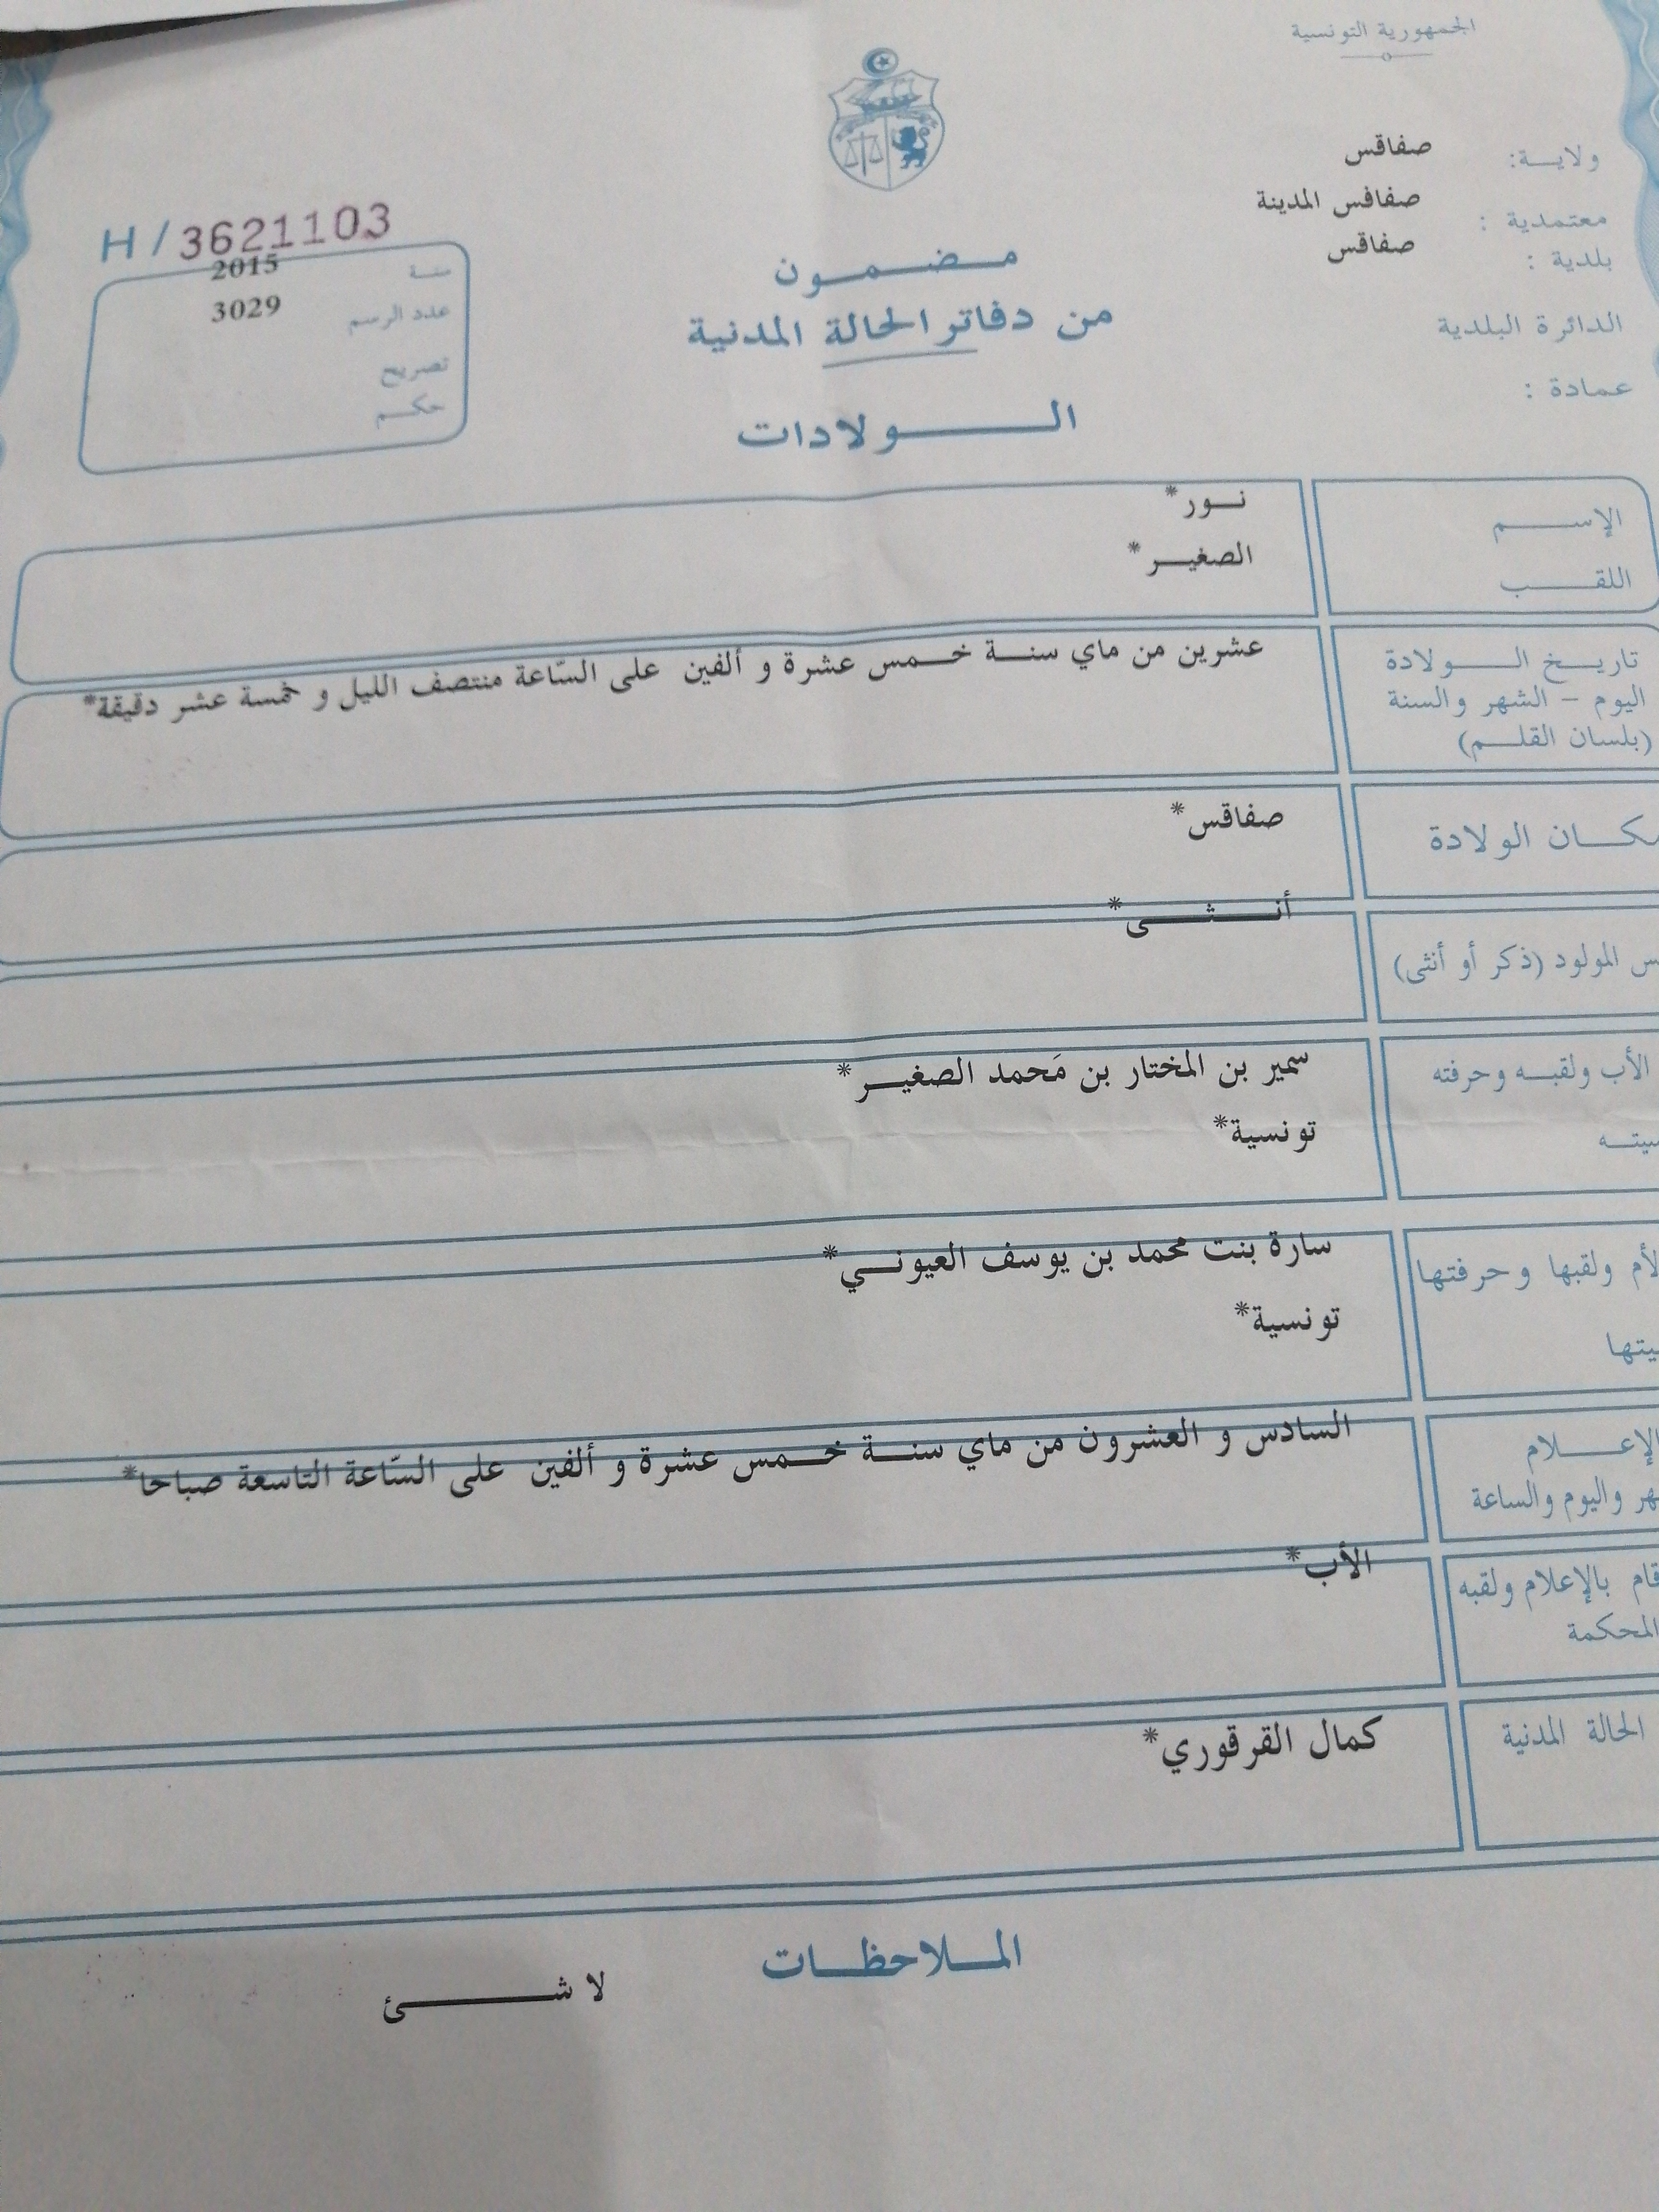 الجمهورية التونسية
ولاية: صفاقس
معتمدية : صفاقس المدينة
بلدية : صفاقس
الدائرة البلدية
عمادة :
H/3621103
سنة 2015
عدد الرسم 3029
تصريح
حكم
مضمون
من دفاتر الحالة المدنية
الولادات
الإسم نور*
اللقب الصغير*
تاريخ الولادة عشرين من ماي سنة خمس عشرة و ألفين على السّاعة منتصف الليل و خمسة عشر دقيقة*
اليوم - الشهر والسنة
(بلسان القلم)
مكان الولادة صفاقس*
أنثى*
المولود (ذكر أو أنثى)
الأب ولقبه وحرفته سمير بن المختار بن مَحمد الصغير*
تونسية*
الأم ولقبها وحرفتها سارة بنت محمد بن يوسف العيوني*
تونسية*
الإعلام السادس و العشرون من ماي سنة خمس عشرة و ألفين على السّاعة التاسعة صباحا*
واليوم والساعة
قام بالإعلام ولقبه الأب*
المحكمة
الحالة المدنية كمال القرقوري*
الملاحظات
لا شئ